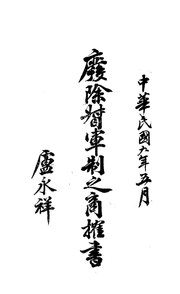 中華民國九年五月
廢除督軍制之商搉書
盧永祥